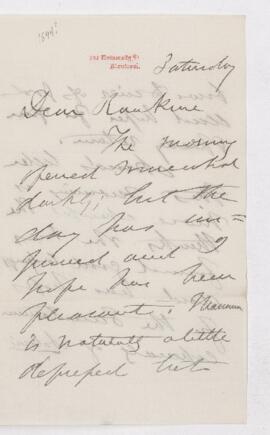 1894?
Saturday
Dear Rankine
The morning
opened somewhat
darkly; but the
day has im=
proved and I
hope has been
pleasant. Mamma
is naturally a little
depressed but